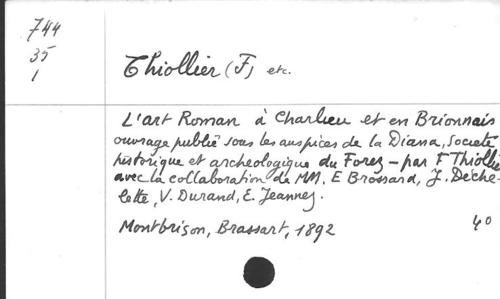 744
35
1
Thiollier (F) etc.
L'art Roman à Charlieu et en Brionnais
ouvrage publié sous les auspices de la Diana, societé
historique et archeologique du Forez - par F Thiollie
avec la collaboration de MM. E Brossard, J. Déche-
lette, V. Durand, E. Jeannez.
Montbrison, Brassart, 1892
4°